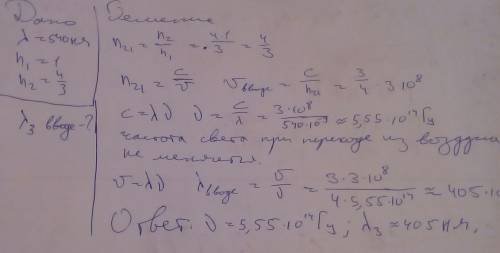 Дано
λ = 540 нм
n₁ = 1
n₂ = 4/3
λ₃ воде - ?
Решение
n₂₁ = n₂/n₁ = 4·1/3 = 4/3
n₂₁ = c/v v воде = c/n₂₁ = 3/4 · 3·10⁸
c = λν ν = c/λ = 3·10⁸/540·10⁻⁹ ≈ 5,55·10¹⁴ Гц
частота света при переходе из воздуха
не меняется.
v = λν λ воде = v/ν = 3·3·10⁸/4·5,55·10¹⁴ ≈ 405·10
Ответ: ν = 5,55·10¹⁴ Гц; λ₃ ≈ 405 нм,